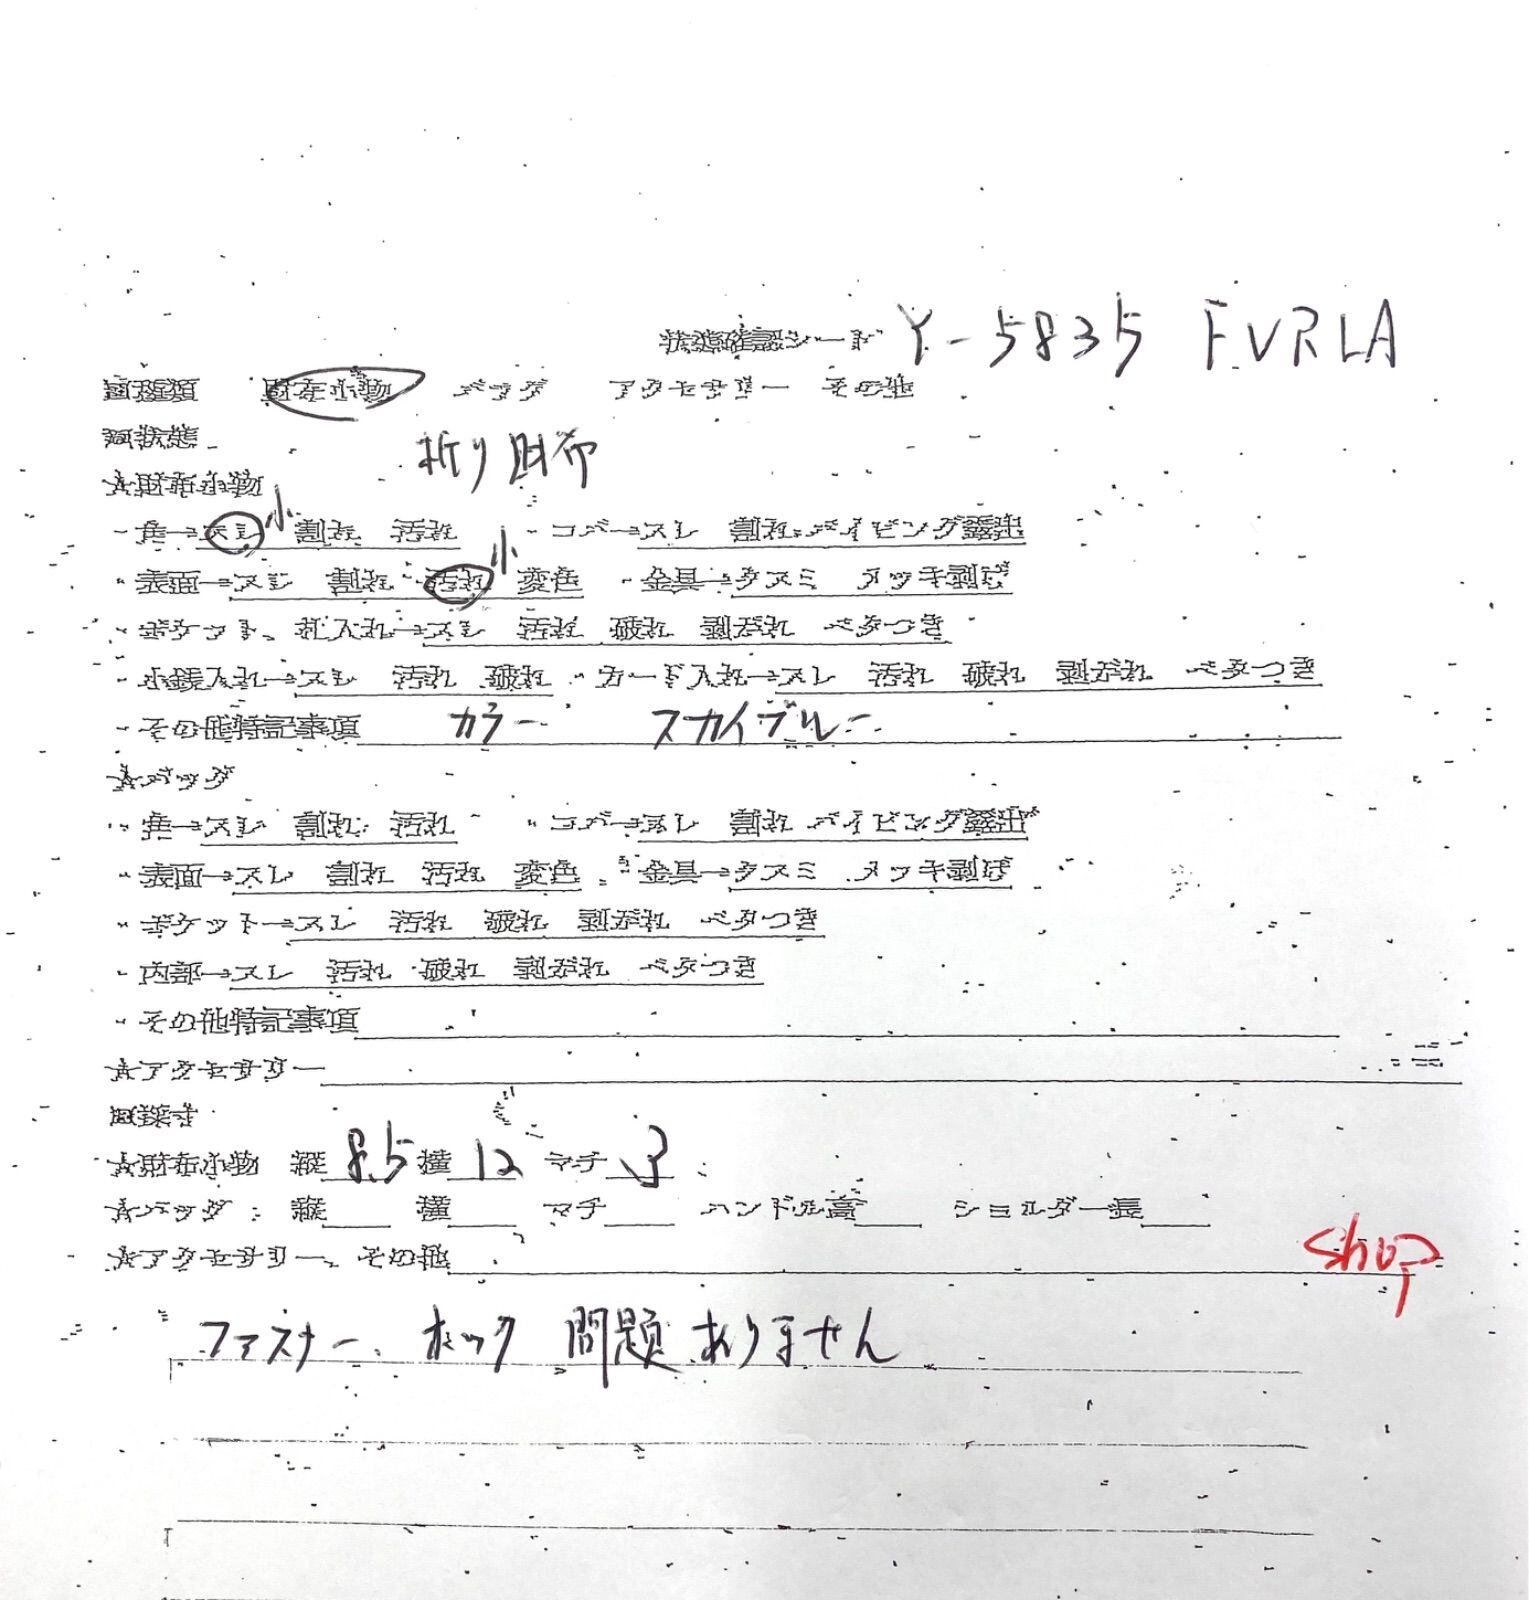 状態確認シード Y-5835 FURLA
回種類 財布小物 バッグ アクセサリー その他
回状態
折り財布
☆財布小物
・角→スレ 小 割れ 汚れ ・コバ→スレ 割れ パイピング露出
・表面→スレ 割れ 汚れ 小 変色 ・金具→クスミ メッキ剥げ
・ポケット、札入れ→スレ 汚れ 破れ 剥がれ ベタつき
・小銭入れ→スレ 汚れ 破れ ・カード入れ→スレ 汚れ 破れ 剥がれ ベタつき
・その他特記事項 カラー スカイブルー
☆バッグ
・角→スレ 割れ 汚れ ・コバ→スレ 割れ パイピング露出
・表面→スレ 割れ 汚れ 変色 ・金具→クスミ メッキ剥げ
・ポケット→スレ 汚れ 破れ 剥がれ ベタつき
・内部→スレ 汚れ 破れ 剥がれ ベタつき
・その他特記事項
☆アクセサリー
回採寸
☆財布小物 縦 8.5 横 12 マチ 3
☆バッグ 縦 横 マチ ハンドル高 ショルダー長
☆アクセサリー、その他
shop
ファスナー、ホック 問題ありません